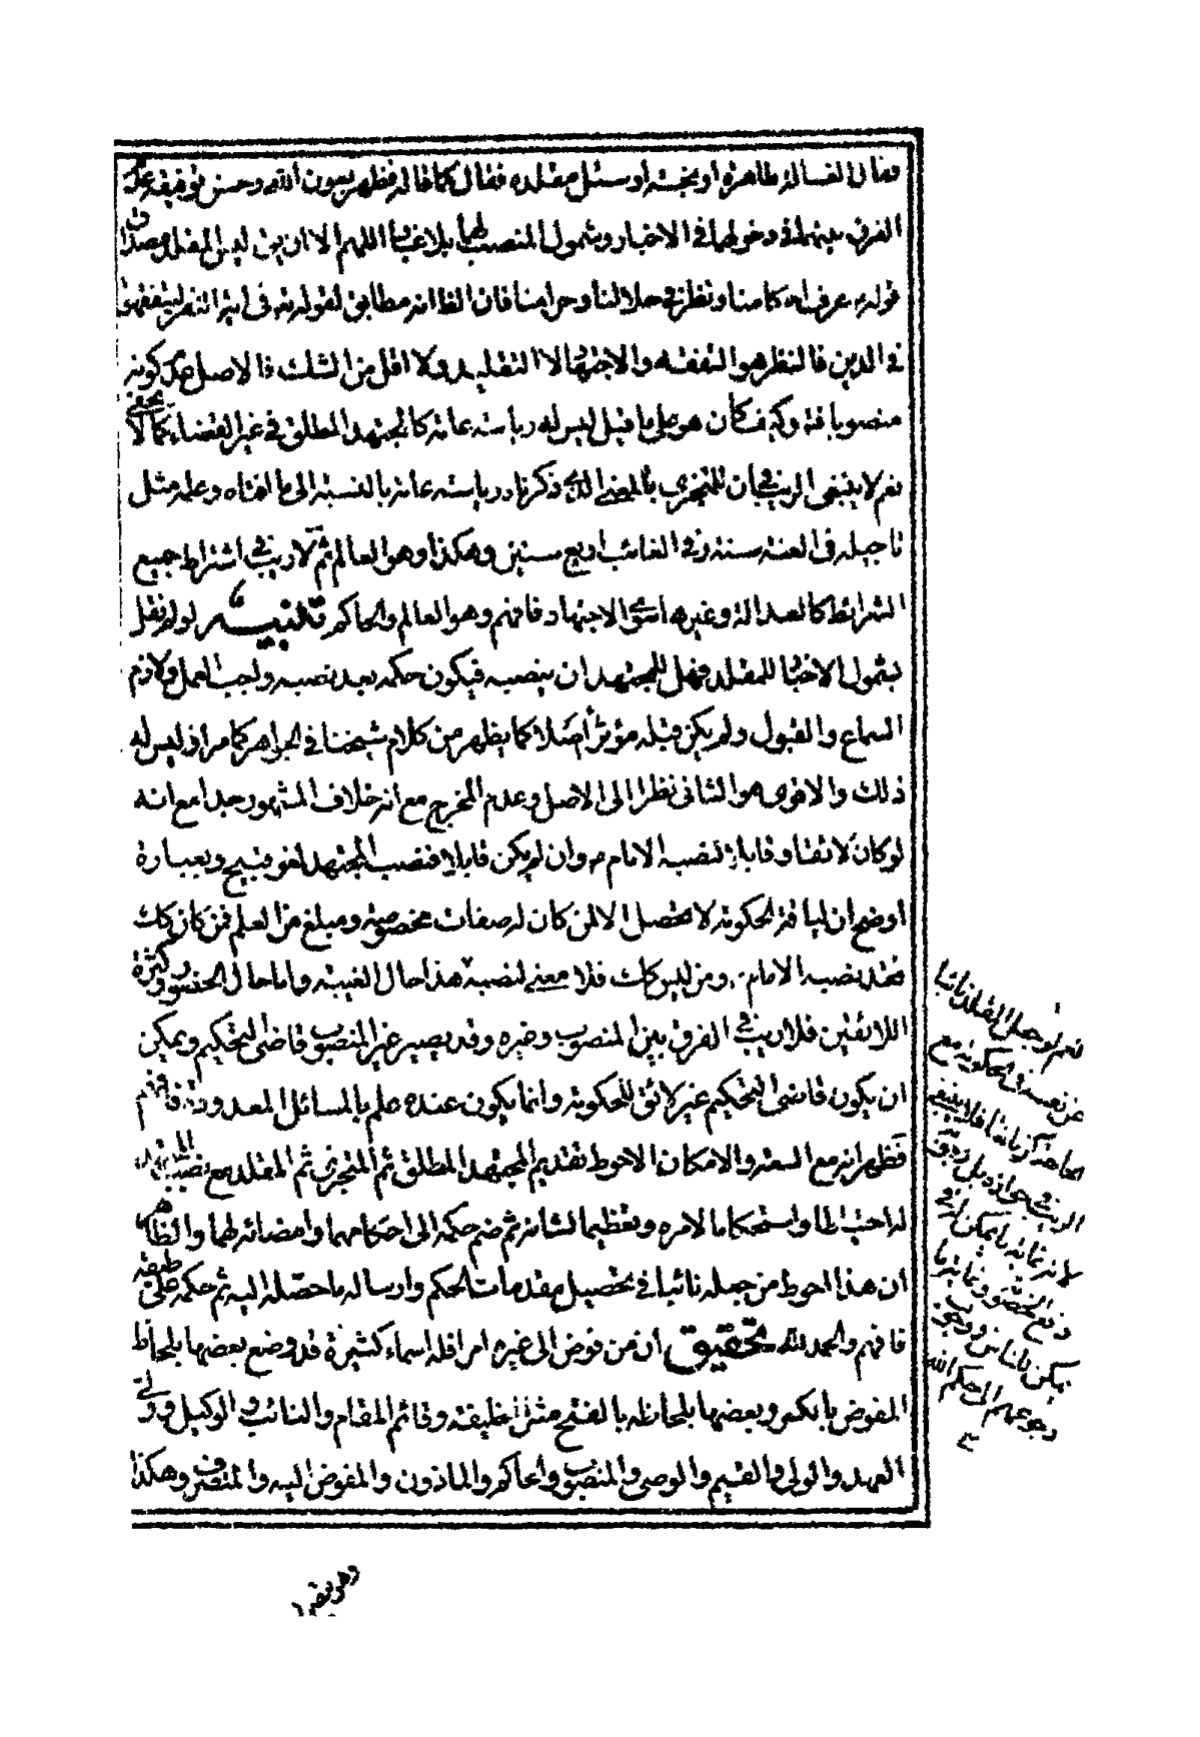 فقال الغسالة طاهرة او نجسة او سئل مقلده فقال كما قاله فظهر بعون الله وحسن توفيقه عدم
الفرق بينهما فى دخولهما فى الاخبار وشمول المنصب لهما بلا غبار اللهم الا ان يق ليس المقلد مصداق
قوله عرف احكامنا ونظر فى حلالنا وحرامنا فان الظ انه مطابق لقوله تع فى اية النفر ليتفقهوا
فى الدين فالنظر هو التفقه والاجتهاد لا التقليد ولا اقل من الشك فالاصل عدم كونه
منصوبا فت وكيف كان هو على ما قيل ليس له رياسة عامة كالمجتهد المطلق فى غير القضاء كما لا يخفى
نعم لا ينبغى الريب فى ان للمتجزى بالمعنى الذى ذكرنا رياسة عامة بالنسبة الى ما افتاه وعلمه مثل
تاجيله فى العنة سنة وفى الغائب اربع سنين وهكذا وهو العالم ثم لا ريب فى اشتراط جميع
الشرائط كالعدالة وغيرها سوى الاجتهاد فافهم وهو العالم والحاكم تنبيه لو لم نقل
بشمول الاخبار للمقلد فهل للمجتهد ان ينصبه فيكون حكمه بعد نصبه واجب العمل ولازم
السماع والقبول ولم يكن قبله مؤثرا اصلا كما يظهر من كلام شيخنا فى الجواهر كما مر او ليس له
ذلك والاقوى هو الثانى نظرا الى الاصل وعدم المخرج مع انه خلاف المشهور جدا مع انه
لو كان لائقا وقابلا لنصبه الامام ع وان لم يكن قابلا فنصب المجتهد لغو قبيح وبعبارة
اوضح ان لياقة الحكومة لا تحصل الا لمن كان له صفات مخصوصة ومبلغ من العلم فمن كان كك
فقد نصبه الامام ع ومن ليس كك فلا معنى لنصبه هذا حال الغيبة واما حال الحضور وكثرة
اللائقين فلا ريب فى الفرق بين المنصوب وغيره وقد يصير غير المنصوب قاضى التحكيم ويمكن
ان يكون قاضى التحكيم غير لائق للحكومة وانما يكون عنده علم بالمسائل المعدودة فافهم
فظهر انه مع السعة والامكان الاحوط تقديم المجتهد المطلق ثم المتجزى ثم المقلد مع نصب المجتهد
له احتياطا واستحكاما لامره وتعظيما لشانه ثم ضم حكمه الى احكامهما وامضائه لهما والظاهر
ان هذا احوط من جعله نائبا فى تحصيل مقدمات الحكم وارساله ما حصله اليه ثم حكمه على طبقه
فافهم والحمد لله تحقيق ان من فوض الى غيره امرا فله اسماء كثيرة قد وضع بعضها بلحاظ
المفوض بالكسر وبعضها بلحاظه بالفتح مثل الخليفة وقائم المقام والنائب والوكيل وولى
العهد والولى والقيم والوصى والمنصوب والحاكم والماذون والمفوض اليه والمتصرف وهكذا
نعم لو جعل المقلد نائبا
عن نفسه فى الحكومة مع
الريب فى جوازه بل
لانه غاية ما يمكن ان
يمكن للناس
رجوعهم الى حكم الله